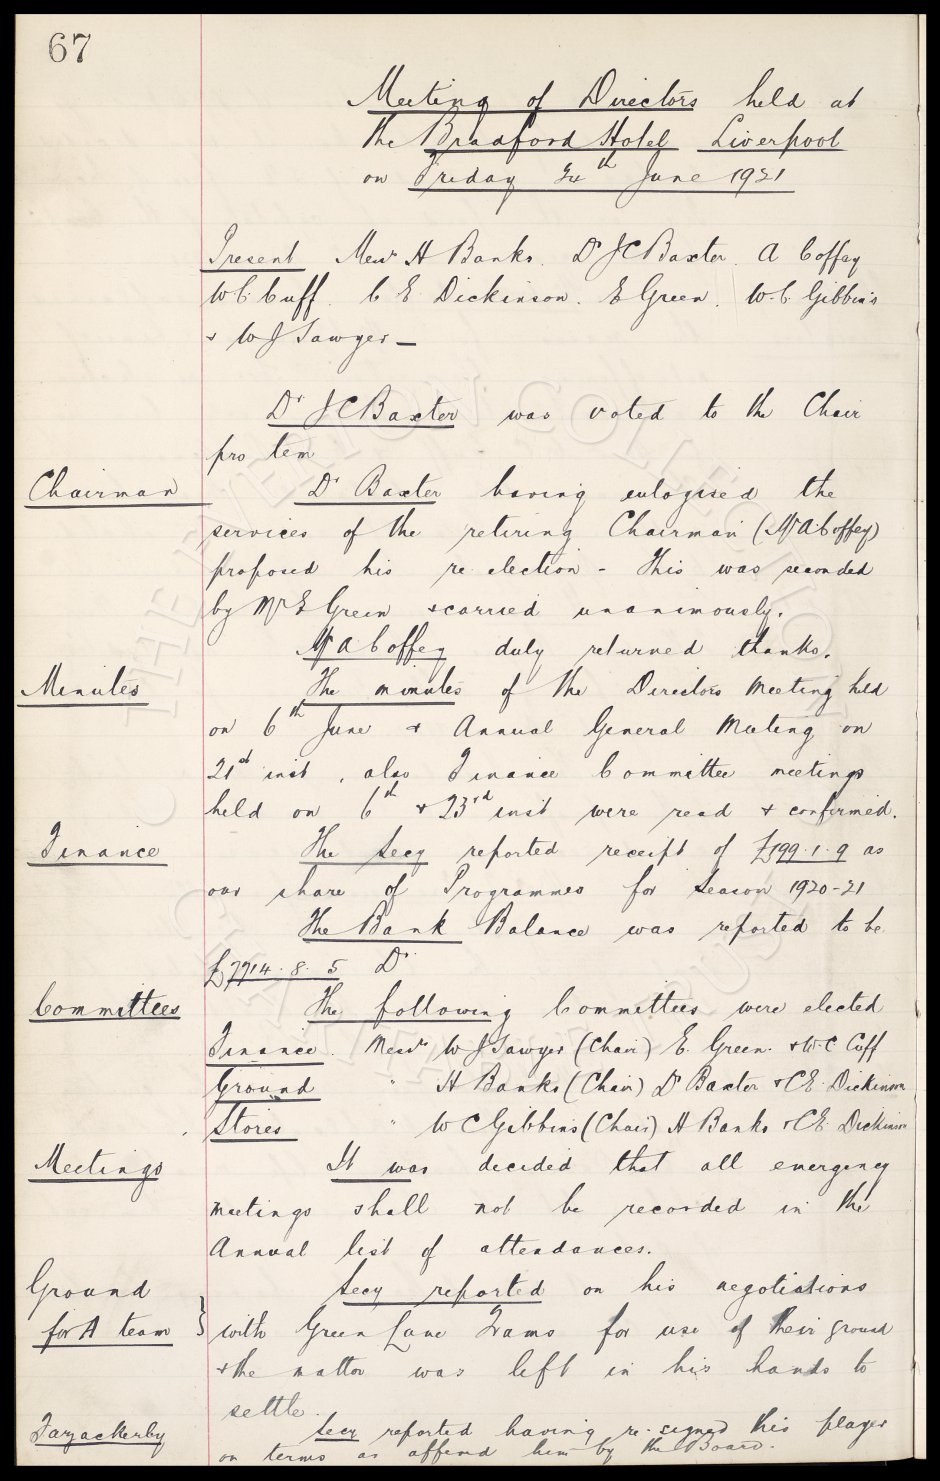 67
Meeting of Directors held at
the Bradford Hotel Liverpool
on Friday 24th June 1921
Present Messrs H Banks. Dr J C Baxter. A Coffey
W.C. Cuff. C E Dickinson. E Green. W.C. Gibbins
& W J Sawyer —
Dr J C Baxter was voted to the Chair
pro tem
Chairman Dr Baxter having eulogised the
services of the retiring Chairman (Mr A Coffey)
proposed his re election - This was seconded
by Mr E Green & carried unanimously.
Mr A Coffey duly returned thanks.
Minutes The minutes of the Directors Meeting held
on 6th June & Annual General Meeting on
21st inst, also Finance Committee meetings
held on 6th & 23rd inst were read & confirmed.
Finance The Secy reported receipt of £199.1.9 as
our share of Programmes for Season 1920-21
The Bank Balance was reported to be
£7714.8.5 Dr
Committees The following Committees were elected
Finance. Messrs W J Sawyer (Chair) E. Green. & W C Cuff
Ground " H Banks (Chair) Dr Baxter & C E. Dickinson
Stores " W C Gibbins (Chair) H Banks & C E. Dickinson
Meetings It was decided that all emergency
meetings shall not be recorded in the
Annual list of attendances.
Ground Secy reported on his negotiations
for A team } with Green Lane Trams for use of their ground
& the matter was left in his hands to
settle.
Fazackerley Secy reported having re-signed this player
on terms as offered him by the Board.
THE EVERTON COLLECTION